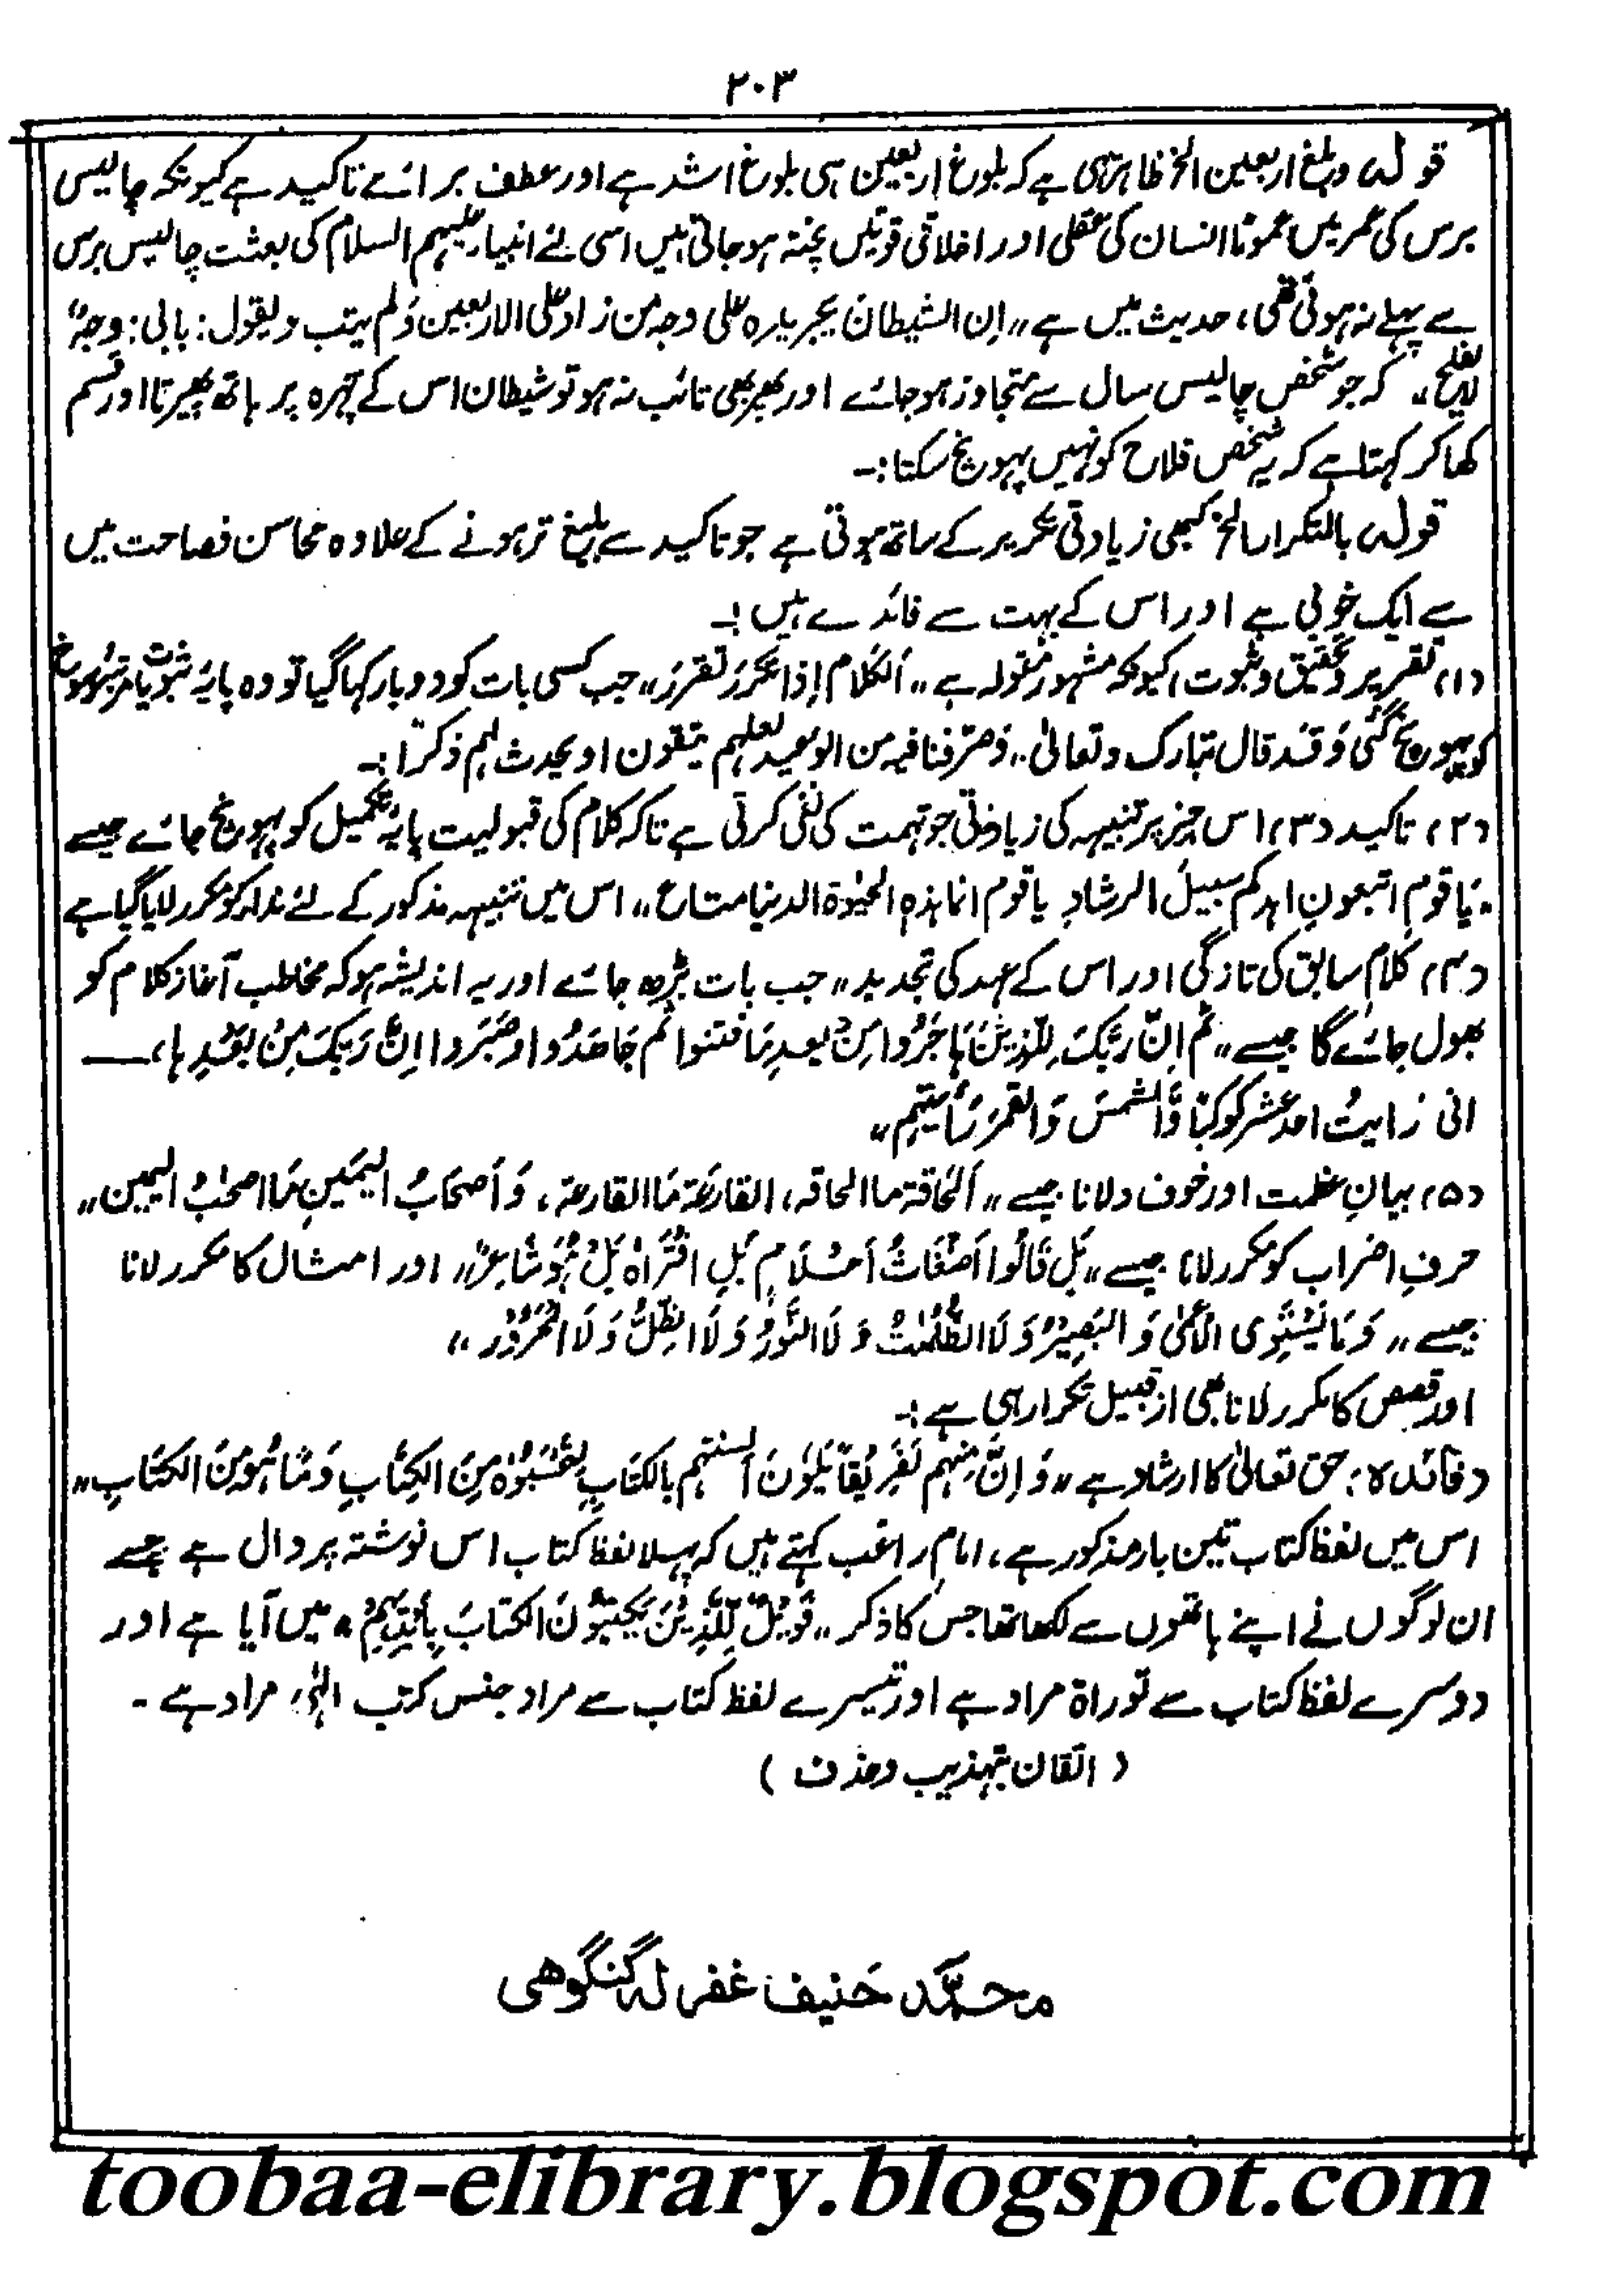 ۲۰۳
قولہ وبلغ اربعین الخ ظاہر یہی ہے کہ بلوغ اربعین ہی بلوغ اشد ہے اور عطف برائے تاکید ہے کیونکہ چالیس
برس کی عمر میں عموماً انسان کی عقلی اور اخلاقی قوتیں پختہ ہو جاتی ہیں اسی لئے انبیاء علیہم السلام کی بعثت چالیس برس
سے پہلے نہ ہوتی تھی، حدیث میں ہے ،،اِن الشیطانَ یجر یدہ علی وجہ من زاد علی الاربعین وَلم یتب ویقول: بابی: وجہٌ
لایفلح،، کہ جو شخص چالیس سال سے متجاوز ہو جائے اور پھر بھی تائب نہ ہو تو شیطان اس کے چہرہ پر ہاتھ پھیرتا اور قسم
کھا کر کہتا ہے کہ یہ شخص فلاح کو نہیں پہونچ سکتا:۔
قولہ بالتکرار الخ کبھی زیادتی تکریر کے ساتھ ہوتی ہے جو تاکید سے بلیغ تر ہونے کے علاوہ محاسن فصاحت میں
سے ایک خوبی ہے اور اس کے بہت سے فائدے ہیں :۔
(۱) تقریر وتحقیق وثبوت، کیونکہ مشہور مقولہ ہے ،،اَلکلام اِذا تکررَ تقررَ،، جب کسی بات کو دوبار کہا گیا تو وہ پایۂ ثبوت
کو پہونچ گئی وَقد قال تبارک وتعالیٰ ،،وَصرّفنا فیہ من الوعید لعلہم یتقون او یحدث لہم ذکرًا:۔
(۲) تاکید (۳) اس چیز پر تنبیہہ کی زیادتی جو تہمت کی نفی کرتی ہے تاکہ کلام کی قبولیت پایۂ تکمیل کو پہونچ جائے جیسے
،،یَا قومِ اتبعونِ اہدکم سبیلَ الرشادِ یا قوم انما ہذہِ الحیٰوۃ الدنیا متاع،، اس میں تنبیہہ مذکور کے لئے ندا کو مکرر لایا گیا ہے
(۴) کلام سابق کی تازگی اور اس کے عہد کی تجدید،، جب بات بڑھ جائے اور یہ اندیشہ ہو کہ مخاطب آغاز کلام کو
بھول جائے گا جیسے ،،ثم اِنّ رَبّکَ لِلّذِیْنَ ہَاجَرُوا مِنْ بعدِ مَا فتنوا ثم جَاہَدُوا وصَبَروا اِنَّ رَبّکَ مِنْ بَعْدِہا، ——
انی رَایتُ احد عشر کوکبًا وَّالشمسَ وَالقمَرَ رَأیتہم،،
(۵) بیانِ عظمت اور خوف دلانا جیسے ،،اَلحَاقۃ ما الحاقہ، القارعَۃ مَا القارعۃ، وَاَصحَابُ الیَمَینِ مَا اصحٰبُ الیمین،،
حرفِ اضراب کو مکرر لانا جیسے ،،بَل قَالُوا اَضْغَاثُ اَحْلَامٍ بَلِ افْتَرَاہُ بَلْ ہُوَ شَاعِرٌ،، اور امثال کا مکرر لانا
جیسے ،،وَمَا یَسْتَوِی الْاَعْمٰی وَالْبَصِیْرُ وَلَا الظُّلُمٰتُ وَلَا النُّوْرُ وَلَا الظِّلُّ وَلَا الْحَرُوْرُ،،
اور قصص کا مکرر لانا بھی از قبیل تکرار ہی ہے :۔
(فائدہ: حق تعالیٰ کا ارشاد ہے ،،وَاِنَّ مِنْہُمْ لَفَرِیْقًا یَّلْوٗنَ اَلْسِنتہم بالکتَابِ لِتَحْسَبُوْہُ مِنَ الْکِتَابِ وَمَا ہُوَ مِنَ الکتَابِ،،
اس میں لفظ کتاب تین بار مذکور ہے، امام راغب کہتے ہیں کہ پہلا لفظ کتاب اس نوشتہ پر دال ہے جسے
ان لوگوں نے اپنے ہاتھوں سے لکھا تھا جس کا ذکر ،،فَوَیْلٌ لِّلَّذِیْنَ یَکْتُبُوْنَ الکتابَ بِاَیْدِیْہِمْ،، میں آیا ہے اور
دوسرے لفظ کتاب سے توراۃ مراد ہے اور تیسرے لفظ کتاب سے مراد جنس کتب الٰہی مراد ہے ۔
(اتقان بتہذیب وحذف)
محمّد حَنیف غفرلہ گنگوھی
toobaa-elibrary.blogspot.com